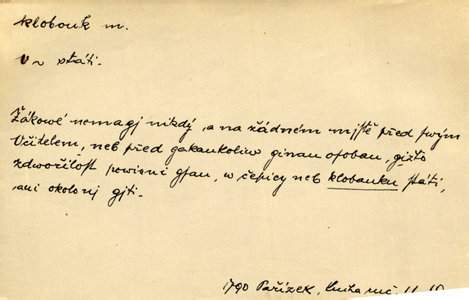 klobouk m.
v ~ státi.
Žákowé nemagj nikdý, a na žádném mjstě před swým
Včitelem, neb před gakaukoliw ginau osobau, gižto
zdwořilost powinni gsau, w čepicy neb klobauku státi,
ani okolo nj gjti.
1790 Pařízek,